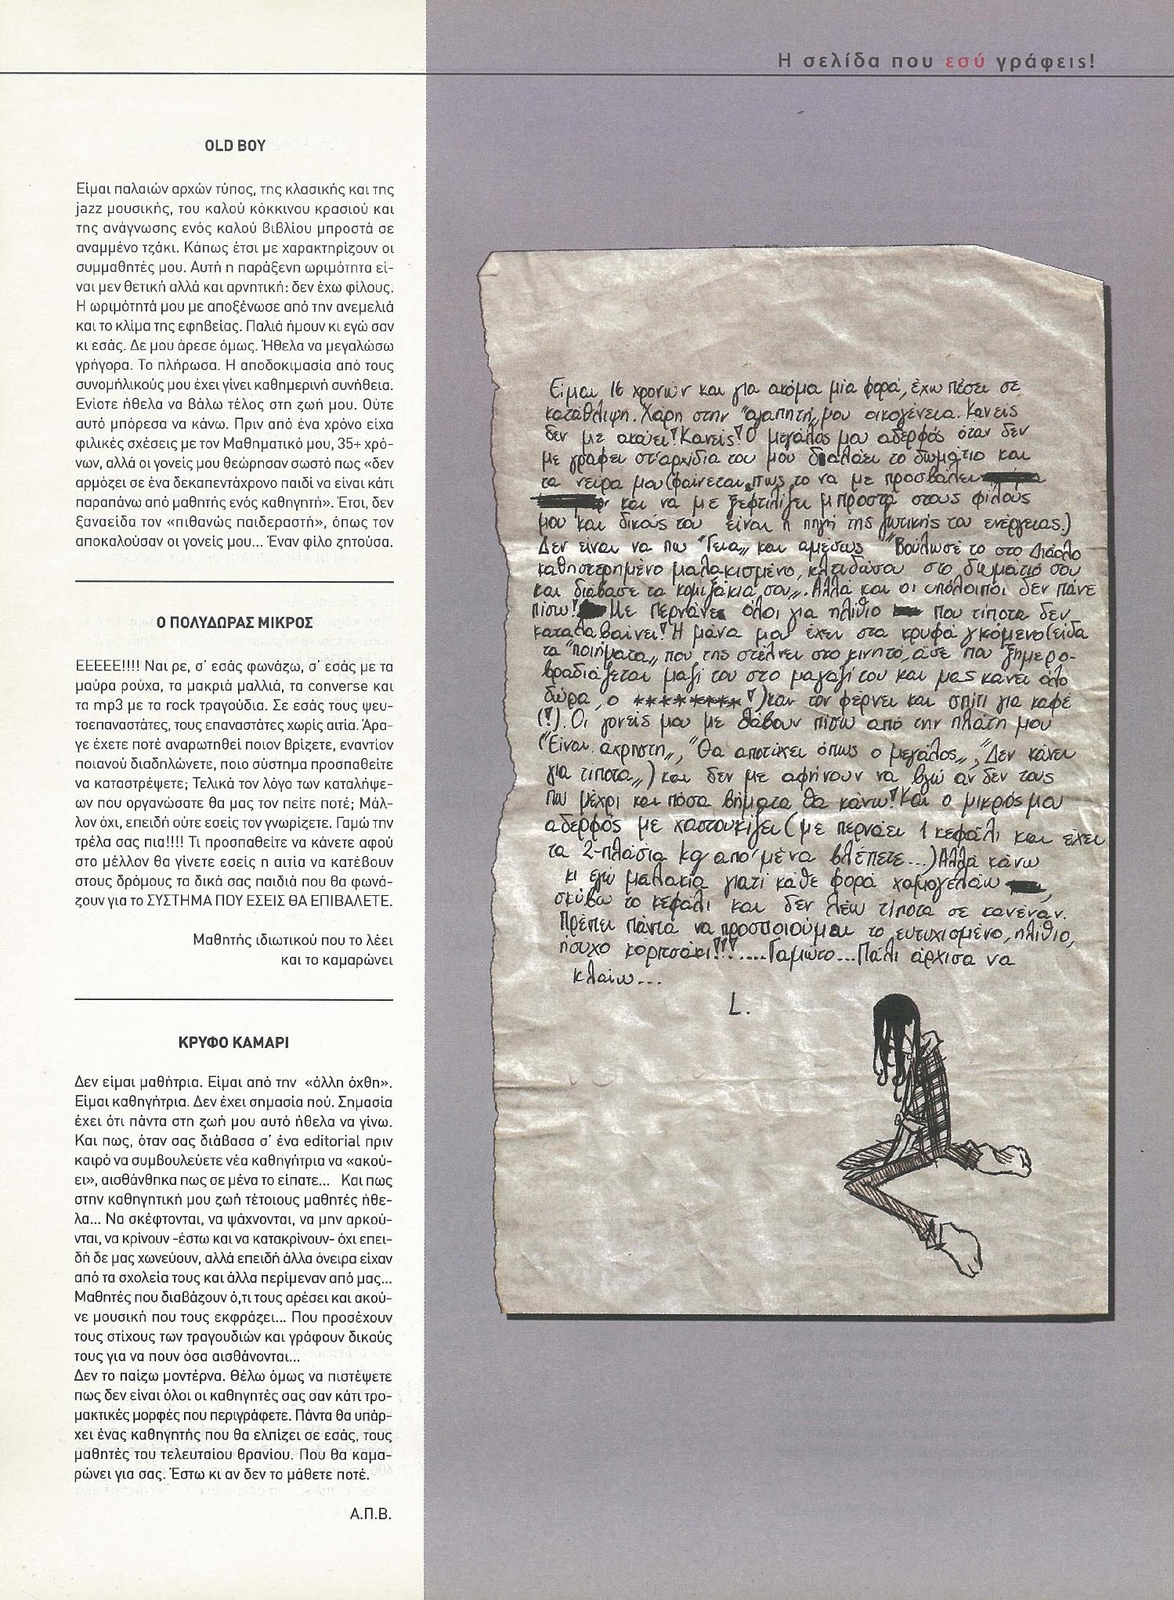 Η σελίδα που εσύ γράφεις!
OLD BOY
Είμαι παλαιών αρχών τύπος, της κλασικής και της
jazz μουσικής, του καλού κόκκινου κρασιού και
της ανάγνωσης ενός καλού βιβλίου μπροστά σε
αναμμένο τζάκι. Κάπως έτσι με χαρακτηρίζουν οι
συμμαθητές μου. Αυτή η παράξενη ωριμότητα εί-
ναι μεν θετική αλλά και αρνητική: δεν έχω φίλους.
Η ωριμότητά μου με αποξένωσε από την ανεμελιά
και το κλίμα της εφηβείας. Παλιά ήμουν κι εγώ σαν
κι εσάς. Δε μου άρεσε όμως. Ήθελα να μεγαλώσω
γρήγορα. Το πλήρωσα. Η αποδοκιμασία από τους
συνομήλικούς μου έχει γίνει καθημερινή συνήθεια.
Ενίοτε ήθελα να βάλω τέλος στη ζωή μου. Ούτε
αυτό μπόρεσα να κάνω. Πριν από ένα χρόνο είχα
φιλικές σχέσεις με τον Μαθηματικό μου, 35+ χρό-
νων, αλλά οι γονείς μου θεώρησαν σωστό πως «δεν
αρμόζει σε ένα δεκαπεντάχρονο παιδί να είναι κάτι
παραπάνω από μαθητής ενός καθηγητή». Έτσι, δεν
ξαναείδα τον «πιθανώς παιδεραστή», όπως τον
αποκαλούσαν οι γονείς μου... Έναν φίλο ζητούσα.
Ο ΠΟΛΥΔΩΡΑΣ ΜΙΚΡΟΣ
ΕΕΕΕΕ!!!! Ναι ρε, σ' εσάς φωνάζω, σ' εσάς με τα
μαύρα ρούχα, τα μακριά μαλλιά, τα converse και
τα mp3 με τα rock τραγούδια. Σε εσάς τους ψευ-
τοεπαναστάτες, τους επαναστάτες χωρίς αιτία. Άρα-
γε έχετε ποτέ αναρωτηθεί ποιον βρίζετε, εναντίον
ποιανού διαδηλώνετε, ποιο σύστημα προσπαθείτε
να καταστρέψετε; Τελικά τον λόγο των καταλήψε-
ων που οργανώσατε θα μας τον πείτε ποτέ; Μάλ-
λον όχι, επειδή ούτε εσείς τον γνωρίζετε. Γαμώ την
τρέλα σας πια!!!! Τι προσπαθείτε να κάνετε αφού
στο μέλλον θα γίνετε εσείς η αιτία να κατέβουν
στους δρόμους τα δικά σας παιδιά που θα φωνά-
ζουν για το ΣΥΣΤΗΜΑ ΠΟΥ ΕΣΕΙΣ ΘΑ ΕΠΙΒΑΛΕΤΕ.
Μαθητής ιδιωτικού που το λέει
και το καμαρώνει
ΚΡΥΦΟ ΚΑΜΑΡΙ
Δεν είμαι μαθήτρια. Είμαι από την «άλλη όχθη».
Είμαι καθηγήτρια. Δεν έχει σημασία πού. Σημασία
έχει ότι πάντα στη ζωή μου αυτό ήθελα να γίνω.
Και πως, όταν σας διάβασα σ' ένα editorial πριν
καιρό να συμβουλεύετε νέα καθηγήτρια να «ακού-
ει», αισθάνθηκα πως σε μένα το είπατε... Και πως
στην καθηγητική μου ζωή τέτοιους μαθητές ήθε-
λα... Να σκέφτονται, να ψάχνονται, να μην αρκού-
νται, να κρίνουν -έστω και να κατακρίνουν- όχι επει-
δή δε μας χωνεύουν, αλλά επειδή άλλα όνειρα είχαν
από τα σχολεία τους και άλλα περίμεναν από μας...
Μαθητές που διαβάζουν ό,τι τους αρέσει και ακού-
νε μουσική που τους εκφράζει... Που προσέχουν
τους στίχους των τραγουδιών και γράφουν δικούς
τους για να πουν όσα αισθάνονται...
Δεν το παίζω μοντέρνα. Θέλω όμως να πιστέψετε
πως δεν είναι όλοι οι καθηγητές σας σαν κάτι τρο-
μακτικές μορφές που περιγράφετε. Πάντα θα υπάρ-
χει ένας καθηγητής που θα ελπίζει σε εσάς, τους
μαθητές του τελευταίου θρανίου. Που θα καμα-
ρώνει για σας. Έστω κι αν δεν το μάθετε ποτέ.
Α.Π.Β.
Είμαι 16 χρονών και για ακόμα μία φορά, έχω πέσει σε
κατάθλιψη. Χάρη στην "αγαπητή„ μου οικογένεια. Κανείς
δεν με ακούει! Κανείς! Ο μεγάλος μου αδερφός όταν δεν
με γράφει στ' αρχίδια του μου διαλάει το δωμάτιο και
τα νεύρα μου (φαίνεται πως το να με προσβάλει
και να με ξεφτιλίζει μπροστά στους φίλους
μου και δικούς του είναι η πηγή της ζωτικής του ενέργειας.)
Δεν είναι να πω "Γεια„ και αμέσως "Βούλωσέ το στο Διάολο
καθηστερημένο μαλακισμένο, κλειδώσου στο δωμάτιό σου
και διάβασε τα κομιξάκια σου„. Αλλά και οι υπόλοιποι δεν πάνε
πίσω! Με περνάνε όλοι για ηλίθιο που τίποτα δεν
καταλαβαίνει! Η μάνα μου έχει στα κρυφά γκόμενο (είδα
τα "ποιήματα„ που της στέλνει στο κινητό, άσε που ξημερο-
βραδιάζεται μαζί του στο μαγαζί του και μας κάνει όλο
δώρα, ο ******** !) και τον φέρνει και σπίτι για καφέ
(!). Οι γονείς μου με θάβουν πίσω από την πλάτη μου
("Είναι άχρηστη„, "Θα αποτύχει όπως ο μεγάλος„, "Δεν κάνει
για τίποτα„) και δεν με αφήνουν να βγω αν δεν τους
πω μέχρι και πόσα βήματα θα κάνω! Και ο μικρός μου
αδερφός με χαστουκίζει (με περνάει 1 κεφάλι και έχει
τα 2-πλάσια kg απο' μένα βλέπετε...) Αλλά κάνω
κι εγώ μαλακία γιατί κάθε φορά χαμογελάω ,
σκύβω το κεφάλι και δεν λέω τίποτα σε κανέναν.
Πρέπει πάντα να προσποιούμαι το ευτυχισμένο, ηλίθιο,
ήσυχο κοριτσάκι!!!....Γαμώτο...Πάλι άρχισα να
κλαίω...
L.